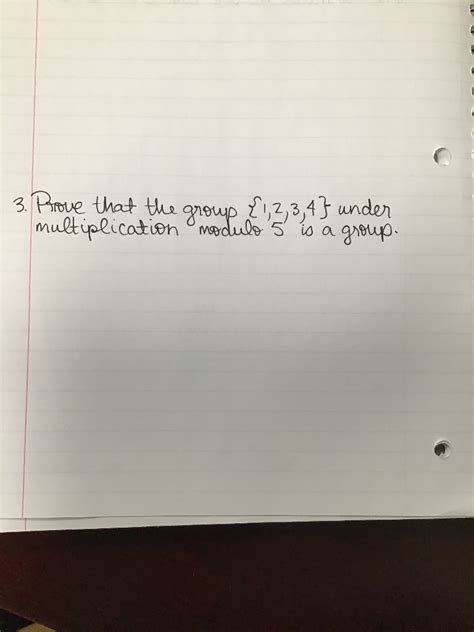 3. Prove that the group {1,2,3,4} under
multiplication modulo 5 is a group.